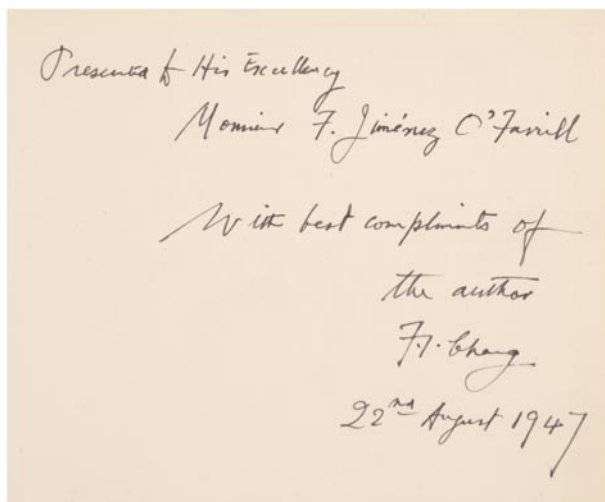 Presented to His Excellency
Monsieur F. Jiménez O'Farrill
With best compliments of
the author
F.T. Cheng
22nd August 1947